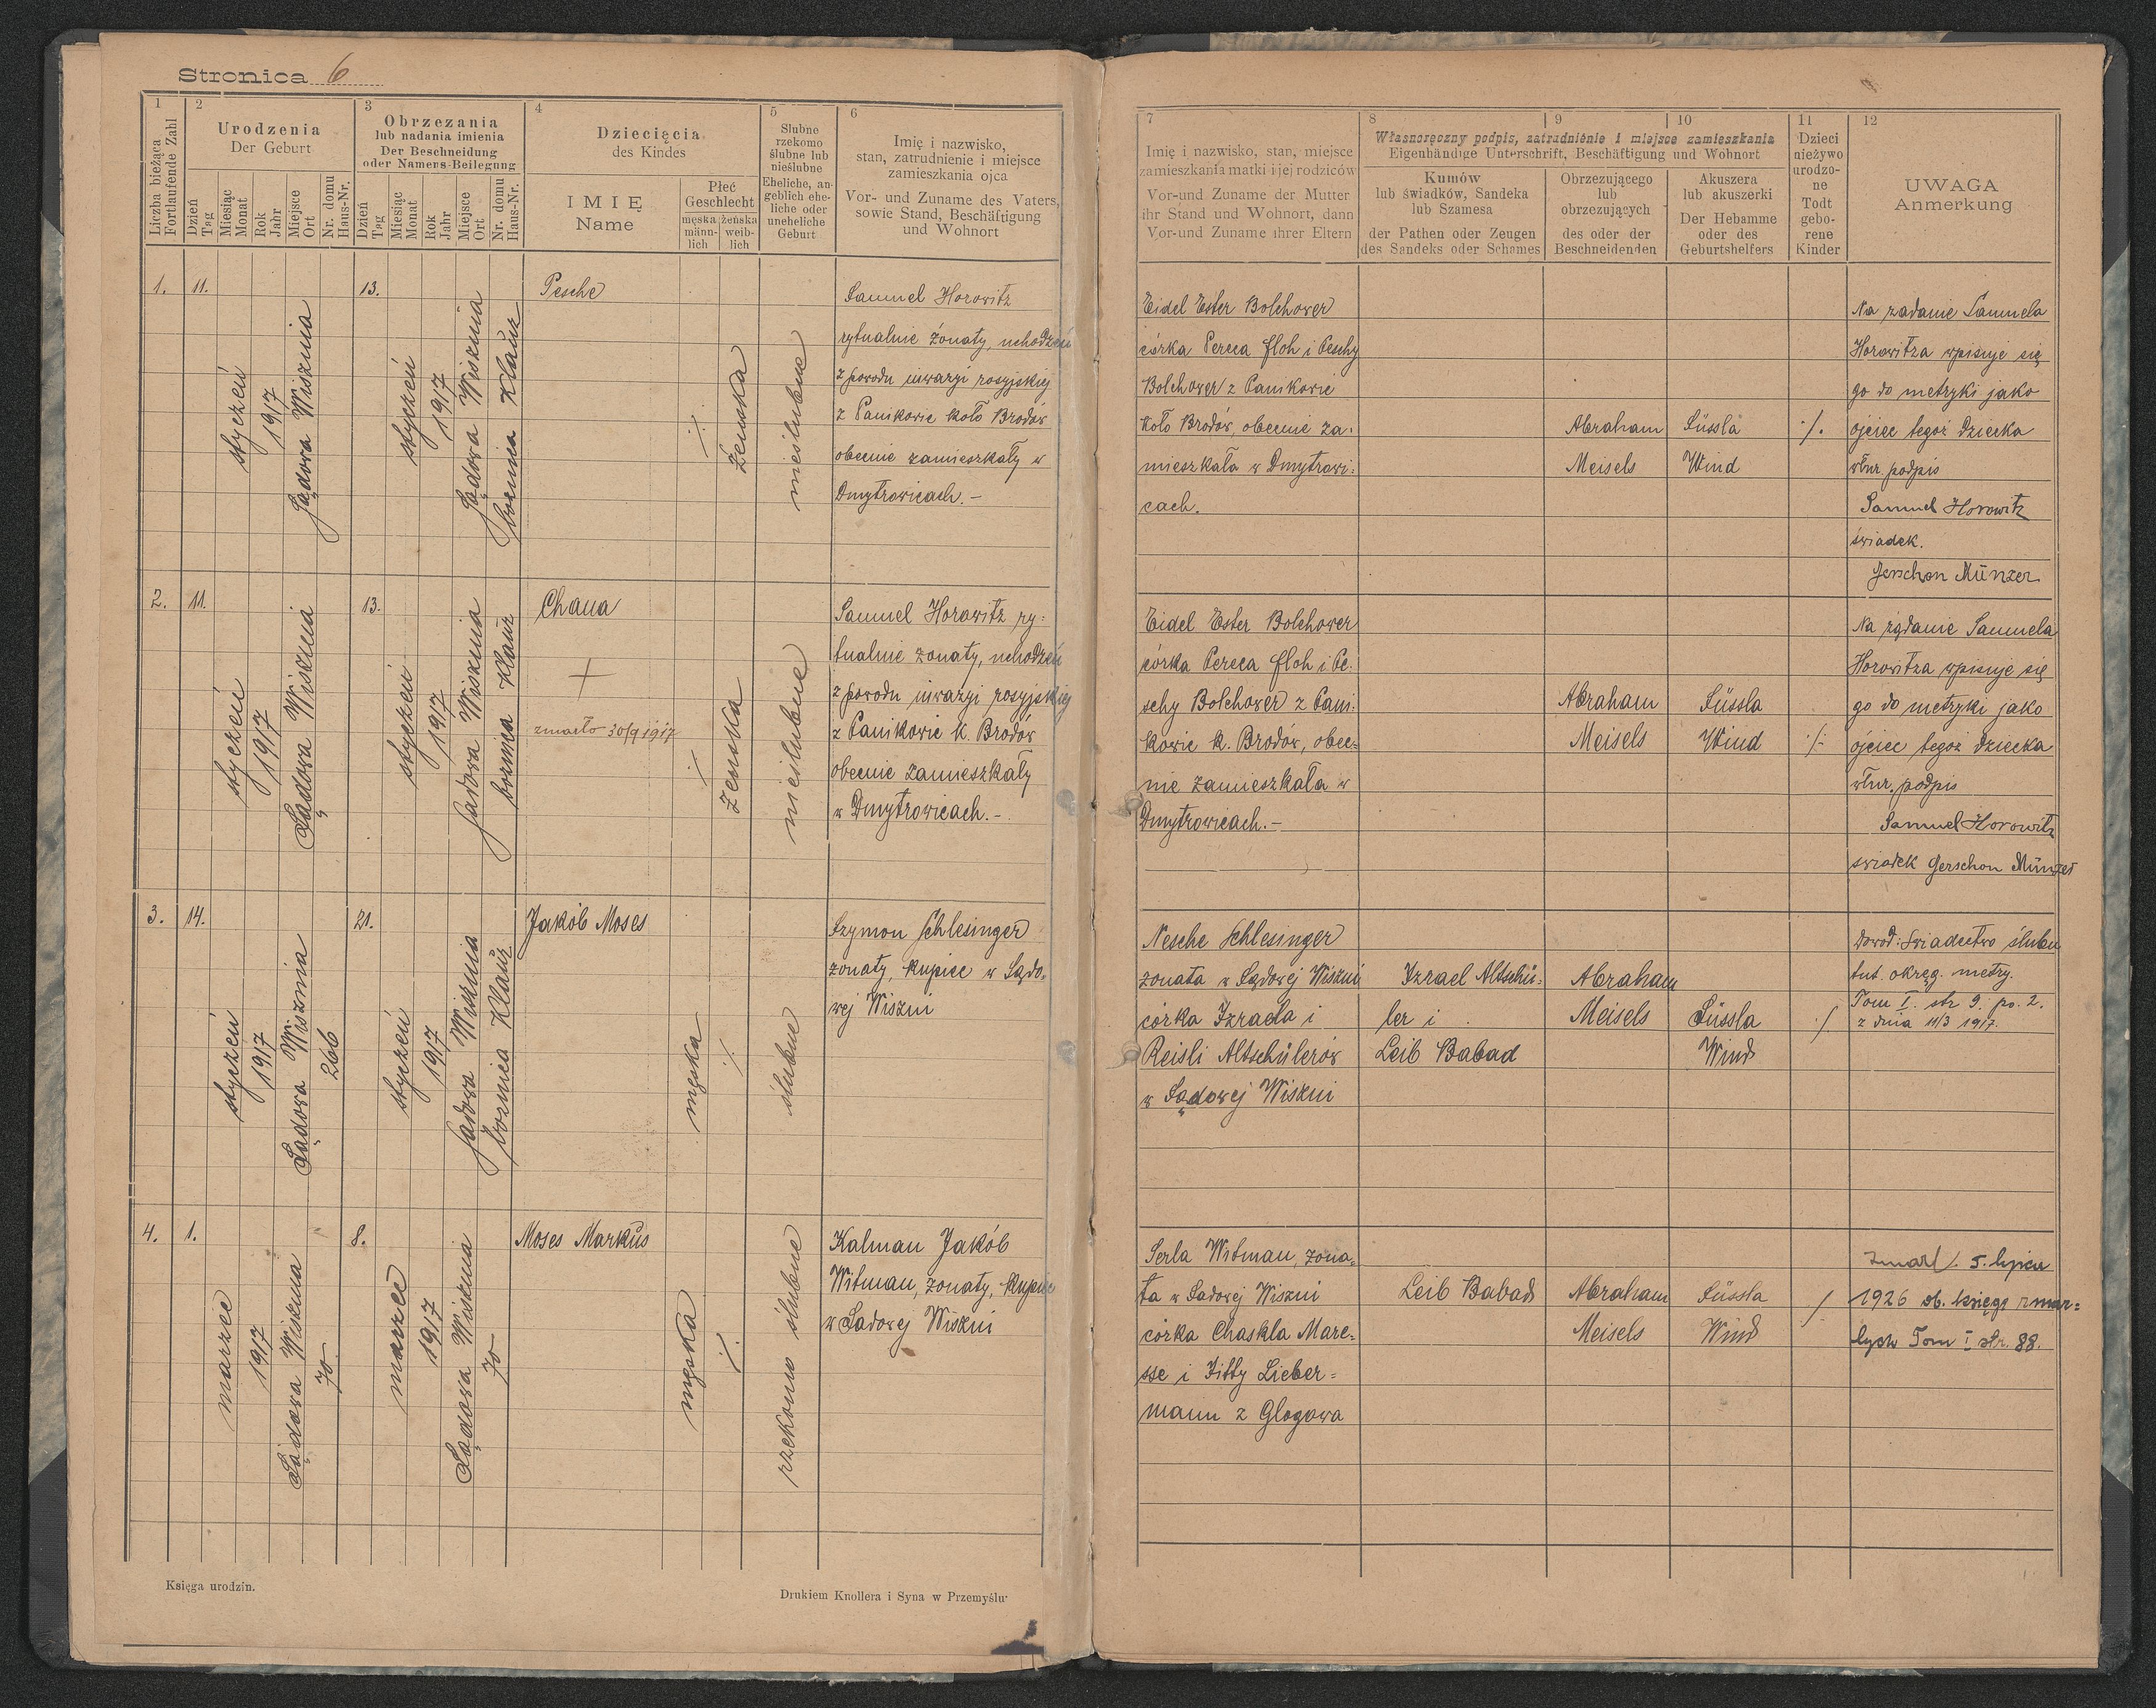 Stronica 6
1
2
3
4
5
6
Liczba bieżąca
Fortlaufende Zahl
Urodzenia
Der Geburt
Dzień
Tag
Miesiąc
Monat
Rok
Jahr
Miejsce
Ort
Nr. domu
Haus-Nr.
Obrzezania
lub nadania imienia
Der Beschneidung
oder Namens-Beilegung
Dzień
Tag
Miesiąc
Monat
Rok
Jahr
Miejsce
Ort
Nr. domu
Haus-Nr.
Dziecięcia
des Kindes
IMIĘ
Name
Płeć
Geschlecht
męska
männ-
lich
żeńska
weib-
lich
Ślubne
rzekomo
ślubne lub
nieślubne
Eheliche, an-
geblich ehe-
liche oder
uneheliche
Geburt
Imię i nazwisko,
stan, zatrudnienie i miejsce
zamieszkania ojca
Vor- und Zuname des Vaters,
sowie Stand, Beschäftigung
und Wohnort
1.
11.
styczeń
1917
Sądowa Wisznia
13.
styczeń
1917
Sądowa Wisznia
boznica Klauz
Pesche
żeńska
nieślubne
Samuel Horowitz
rytualnie żonaty, uchodzeń
z powodu inwazyi rosyjskiej
z Panikowic koło Brodów
obecnie zamieszkały w
Dmytrowicach.-
2.
11.
styczeń
1917
Sądowa Wisznia
13.
styczeń
1917
Sądowa Wisznia
boznica Klauz
Chana
+
zmarło 30/9 1917
żeńska
nieślubne
Samuel Horowitz ry-
tualnie żonaty, uchodzeń
z powodu inwazyi rosyjskiej
z Panikowic k. Brodów
obecnie zamieszkały
w Dmytrowicach.-
3.
14.
styczeń
1917
Sądowa Wisznia
266
21.
styczeń
1917
Sądowa Wisznia
boznica Klauz
Jakób Moses
męska
ślubne
Szymon Schlesinger
żonaty, kupiec w Sądo-
wej Wiszni
4.
1.
marzec
1917
Sądowa Wisznia
70
8.
marzec
1917
Sądowa Wisznia
70
Moses Markus
męska
rzekomo ślubne
Kalman Jakób
Witman, żonaty, kupiec
w Sadowej Wiszni
Księga urodzin.
Drukiem Knollera i Syna w Przemyślu
7
8
9
10
11
12
Imię i nazwisko, stan, miejsce
zamieszkania matki i jej rodziców
Vor-und Zuname der Mutter
ihr Stand und Wohnort, dann
Vor-und Zuname ihrer Eltern
Własnoręczny podpis, zatrudnienie i miejsce zamieszkania
Eigenhändige Unterschrift, Beschäftigung und Wohnort
Kumów
lub świadków, Sandeka
lub Szamesa
der Pathen oder Zeugen
des Sandeks oder Schames
Obrzezującego
lub
obrzezujących
des oder der
Beschneidenden
Akuszera
lub akuszerki
Der Hebamme
oder des
Geburtshelfers
Dzieci
nieżywo
urodzo-
ne
Todt
gebo-
rene
Kinder
UWAGA
Anmerkung
Eidel Ester Bolchower
córka Pereca Floh i Peschy
Bolchower z Panikowic
koło Brodów, obecnie za-
mieszkała w Dmytrowi-
cach.
Abraham
Meisels
Süssla
Wind
Na żadanie Samuela
Horowitza wpisuje się
go do metryki jako
ojciec tegoż dziecka
włnr. podpis
Samuel Horowitz
świadek.
Gerschon Münzer
Eidel Ester Bolchower
córka Pereca Floh i Pe-
schy Bolchower z Pani-
kowic k. Brodów, obec-
nie zamieszkała w
Dmytrowicach.-
Abraham
Meisels
Süssla
Wind
Na żądanie Samuela
Horowitza wpisuje się
go do metryki jako
ojciec tegoż dziecka
włnr. podpis
Samuel Horowitz
swiadek Gerschon Münzer
Nesche Schlesinger
żonata w Sądowej Wiszni
córka Izraela i
Reisli Altschülerów
w Sądowej Wiszni
Izrael Altschü-
ler i
Leib Babad
Abraham
Meisels
Süssla
Wind
Dowód: świadectwo ślubu
tut. okręg. metry.
Tom I. str 9. po. 2.
z dnia 11/3 1917.
Serla Witman, żona-
ta w Sadowej Wiszni
córka Chaskla Mare-
sse i Jitty Lieber-
mann z Glogowa
Leib Babad
Abraham
Meisels
Süssla
Wind
zmarł. 5. lipca
1926 ob. księga zmar-
łych Tom I str. 88.